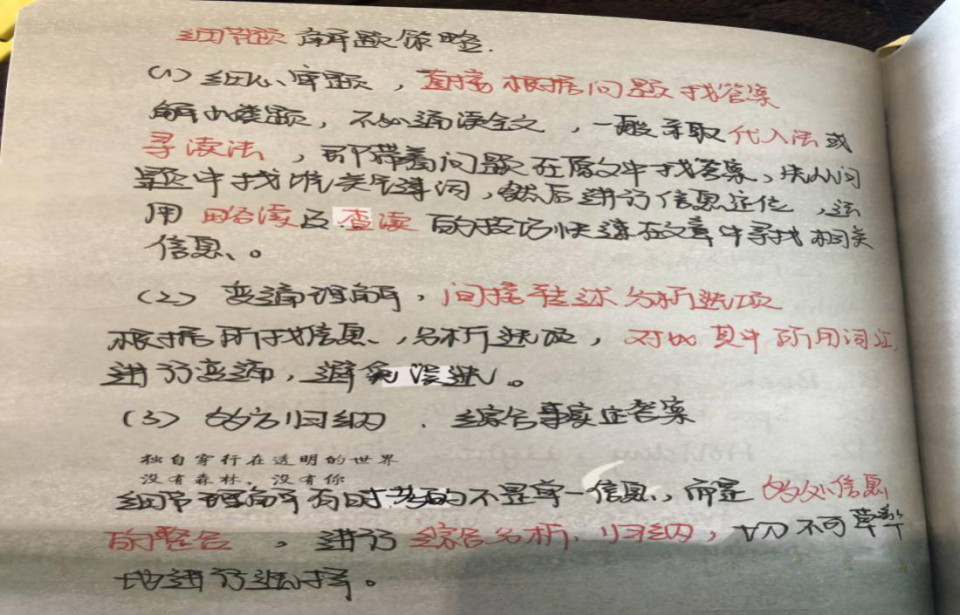 细节题 解题策略.
(1) 细心审题，直接根据问题找答案
解此类题，不必通读全文，一般采取代入法或
寻读法，即带着问题在原文中找答案，先从问
题中找准关键词，然后进行信息定位，运
用 略读及 查读 的技巧快速在文章中寻找相关
信息。
(2) 变通理解，间接转述分析选项
根据所找信息，分析选项，对比其中所用词汇
进行变通，避免误选。
(3) 多方归纳．综合事实定答案
独自穿行在透明的世界
没有森林，没有你
细节理解有时考的不是单一信息，而是 多处信息
的整合，进行综合分析．归纳，切不可草率
地进行选择。